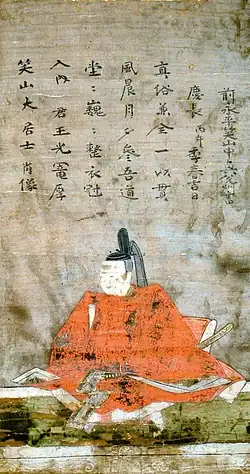 笑山大居士肖像
入内 君王光寵厚
堂〻巍〻整衣冠
風晨月夕參吾道
真俗兼全一以貫
慶長丙午季春吉日
前永平笑山